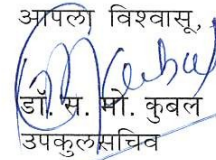 आपला विश्वासू,
डॉ. स. मो. कुबल
उपकुलसचिव